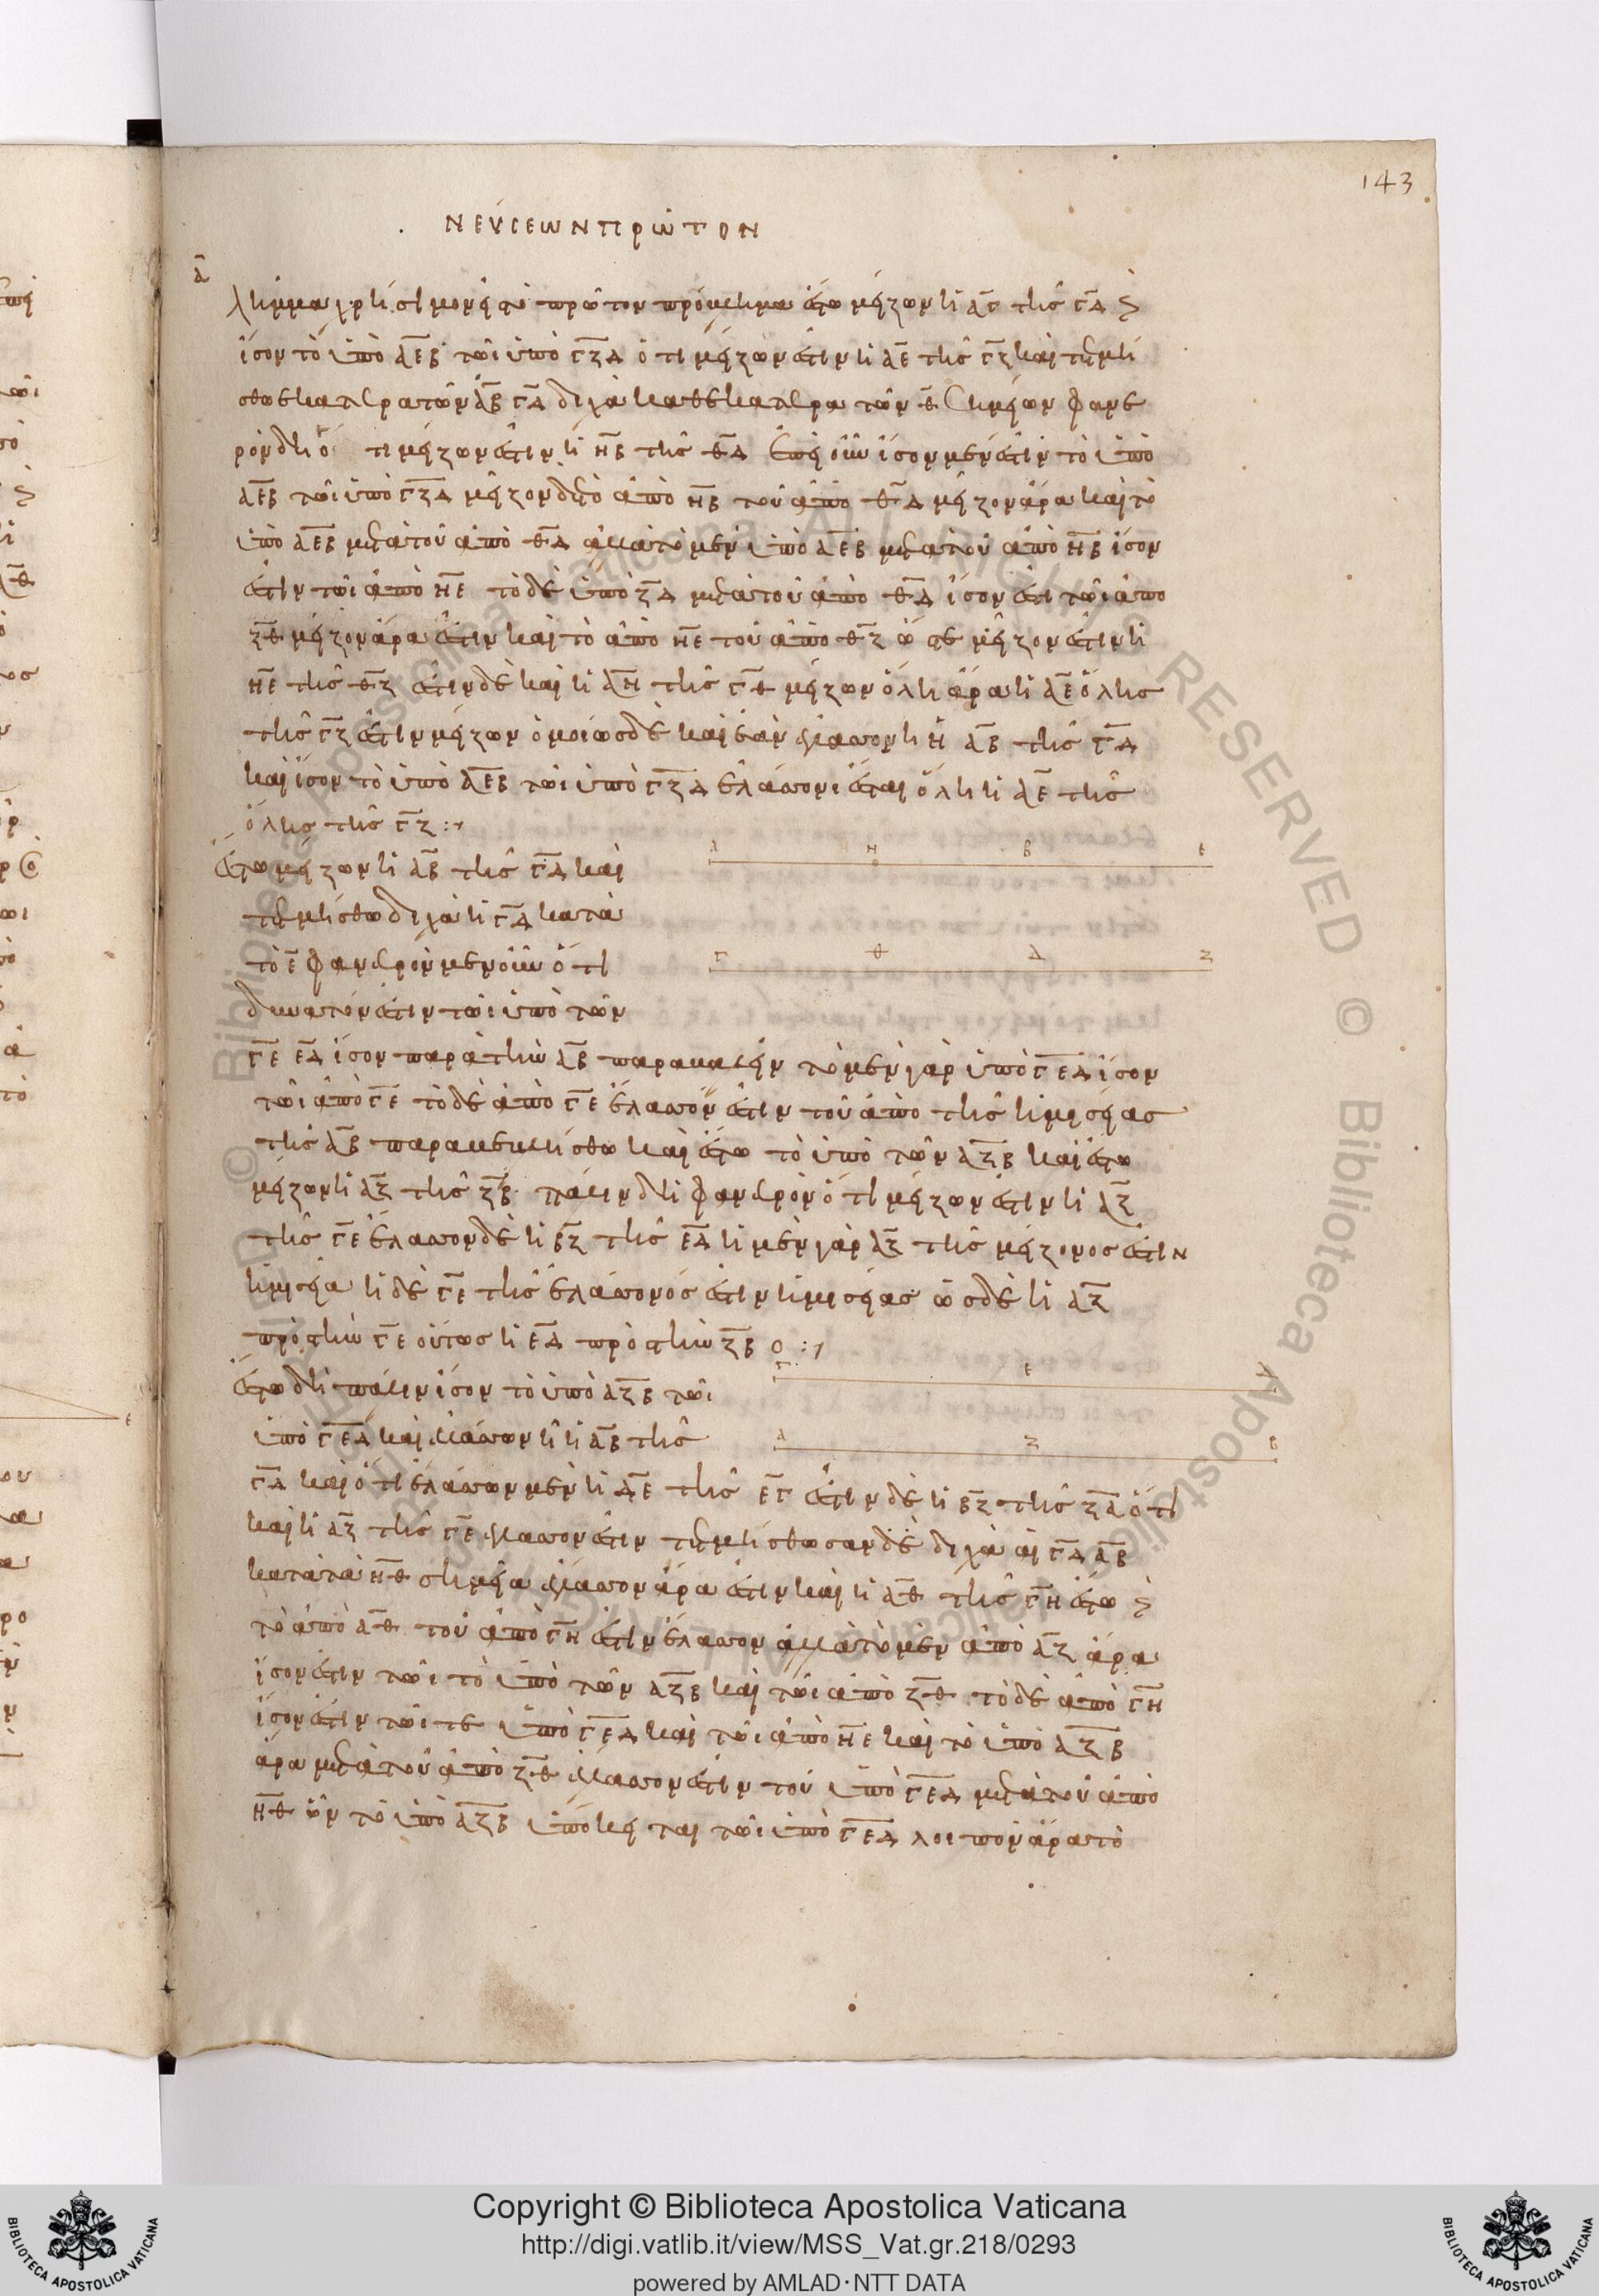 143
ΝΕΥϹΕΩΝ ΠΡΩΤΟΝ
α
λῆμμα χρήσιμον εἰς τὸ πρῶτον πρόβλημα ἔστω μείζων ἡ ΑΓ τῆς ΓΔ καὶ
ἴσον τὸ ὑπὸ ΑΕΒ τῶι ὑπὸ ΓΖΔ ὅτι μείζων ἐστὶν ἡ ΑΕ τῆς ΓΖ καὶ τετμή
σθω ἑκατέρα τῶν ΑΒ ΓΔ δίχα καθ ἑκάτερα τῶν Θ σημείων φανε
ρὸν δὴ ὅτι μείζων ἐστὶν ἡ ΗΒ τῆς ΘΔ ἐπεὶ οὖν ἴσον μέν ἐστιν τὸ ὑπὸ
ΑΕΒ τῶι ὑπὸ ΓΖΔ μεῖζον δὲ τὸ ἀπὸ ΗΒ τοῦ ἀπὸ ΘΔ μεῖζον ἄρα καὶ τὸ
ὑπὸ ΑΕΒ μετὰ τοῦ ἀπὸ ΘΔ ἀλλὰ τὸ μὲν ὑπὸ ΑΕΒ μετὰ τοῦ ἀπὸ ΗΒ ἴσον
ἐστὶν τῶι ἀπὸ ΗΕ τὸ δὲ ὑπὸ ΖΔ μετὰ τοῦ ἀπὸ ΘΔ ἴσον ἐστὶ τῶι ἀπὸ
ΖΘ μεῖζον ἄρα ἐστὶν καὶ τὸ ἀπὸ ΗΕ τοῦ ἀπὸ ΘΖ ὥστε μεῖζον ἐστὶν ἡ
ΗΕ τῆς ΘΖ ἔστιν δὲ καὶ ἡ ΑΗ τῆς ΓΘ μείζων ὅλη ἄρα ἡ ΑΕ ὅλης
τῆς ΓΖ ἐστὶν μείζων ὁμοίως δὲ καὶ ἐὰν ἔλαττον ἡ ἡ ΑΒ τῆς ΓΔ
καὶ ἴσον τὸ ὑπὸ ΑΕΒ τῶι ὑπὸ ΓΖΔ ἐλάττων ἔσται ὅλη ἡ ΑΕ τῆς
ὅλης τῆς ΓΖ :~
Α Η Β Ε
ἔστω μείζων ἡ ΑΒ τῆς ΓΔ καὶ
τετμήσθω δίχα ἡ ΓΔ κατὰ
Γ Θ Δ Ζ
τὸ Ε φανερὸν μὲν οὖν ὅτι
δυνατόν ἐστιν τῶι ὑπὸ τῶν
ΓΕ ΕΔ ἴσον παρὰ τὴν ΑΒ παραβαλεῖν τὸ μὲν γὰρ ὑπὸ ΓΕΔ ἴσον
τῶι ἀπὸ ΓΕ τὸ δὲ ἀπὸ ΓΕ ἔλαττον ἐστὶν τοῦ ἀπὸ τῆς ἡμισείας
τῆς ΑΒ παραβεβλήσθω καὶ ἔστω τὸ ὑπὸ τῶν ΑΖΒ καὶ ἔστω
μείζων ἡ ΑΖ τῆς ΖΒ πάλιν δὴ φανερὸν ὅτι μείζων ἐστὶν ἡ ΑΖ
τῆς ΓΕ ἔλαττον δὲ ἡ ΒΖ τῆς ΕΔ ἡ μὲν γὰρ ΑΖ τῆς μείζονος ἐστὶΝ
ἡμισεία ἡ δὲ ΓΕ τῆς ἐλάττονός ἐστιν ἡμισείας ὡς δὲ ἡ ΑΖ
πρὸς τὴν ΓΕ οὕτως ἡ ΕΔ πρὸς τὴν ΖΒ ο :~
Γ Ε Δ
ἔστω δὴ πάλιν ἴσον τὸ ὑπὸ ΑΖΒ τῶι
ὑπὸ ΓΕΔ καὶ ἐλάττων ἡ ἡ ΑΒ τῆς
Α Ζ Β
ΓΔ καὶ ὅτι ἐλάττων μὲν ἡ ΔΕ τῆς ΕΓ ἔστιν δὲ ἡ ΒΖ τῆς ΖΑ ὅτι
καὶ ἡ ΑΖ τῆς ΓΕ ἔλαττον ἐστὶν τετμήσθωσαν δὲ δίχα αἱ ΓΔ ΑΒ
κατὰ τὰ ΗΘ σημεῖα ἔλαττον ἄρα ἐστὶν καὶ ἡ ΑΘ τῆς ΓΗ ἔστω καὶ
τὸ ἀπὸ ΑΘ τοῦ ἀπὸ ΓΗ ἐστὶν ἔλαττον ἀλλὰ τὸ μὲν ἀπὸ ΑΖ ἄρα
ἴσον ἐστὶν τῶι τὸ ὑπὸ τῶν ΑΖΒ καὶ τῶι ἀπὸ ΖΘ τὸ δὲ ἀπὸ ΓΗ
ἴσον ἐστὶν τῶι τε ὑπὸ ΓΕΔ καὶ τῶι ἀπὸ ΗΕ καὶ τὸ ὑπὸ ΑΖΒ
ἄρα μετὰ τοῦ ἀπὸ ΖΘ ἔλαττον ἐστὶν τοῦ ὑπὸ ΓΕΔ μετὰ τοῦ ἀπὸ
ΗΘ ὧν τὸ ὑπὸ ΑΖΒ ὑπόκειται τῶι ὑπὸ ΓΕΔ λοιπὸν ἄρα τὸ
Copyright © Biblioteca Apostolica Vaticana
http://digi.vatlib.it/view/MSS_Vat.gr.218/0293
powered by AMLAD·NTT DATA